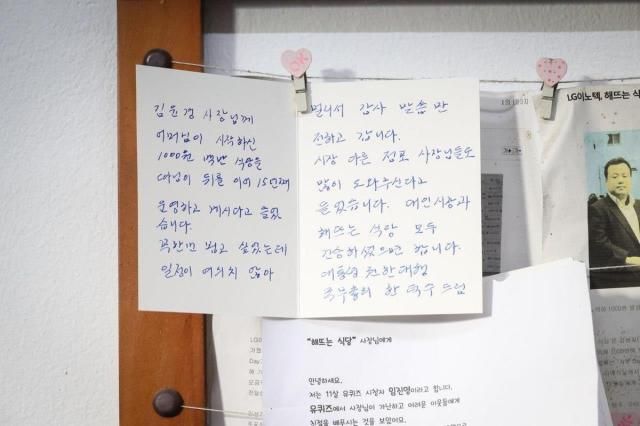 김윤경 사장님께
어머님이 시작하신
1000원 백반 식당을
따님이 뒤를 이어 15년째
운영하고 계시다고 들었
습니다.
꼭한번 뵙고 싶었는데
일정이 여의치 않아
멀리서 감사 말씀만
전하고 갑니다.
시장 다른 점포 사장님들도
많이 도와주신다고
들었습니다. 대인시장과
해뜨는 식당 모두
건승하셨으면 합니다.
대통령 권한대행
국무총리 한덕수 드림
OK
LG이노텍, 해뜨는 식
"해뜨는 식당" 사장님에게
안녕하세요.
저는 11살 유퀴즈 시청자 임진영이라고 합니다.
유퀴즈에서 사장님이 가난하고 어려운 이웃들에게
친절을 베푸시는 것을 보았어요.